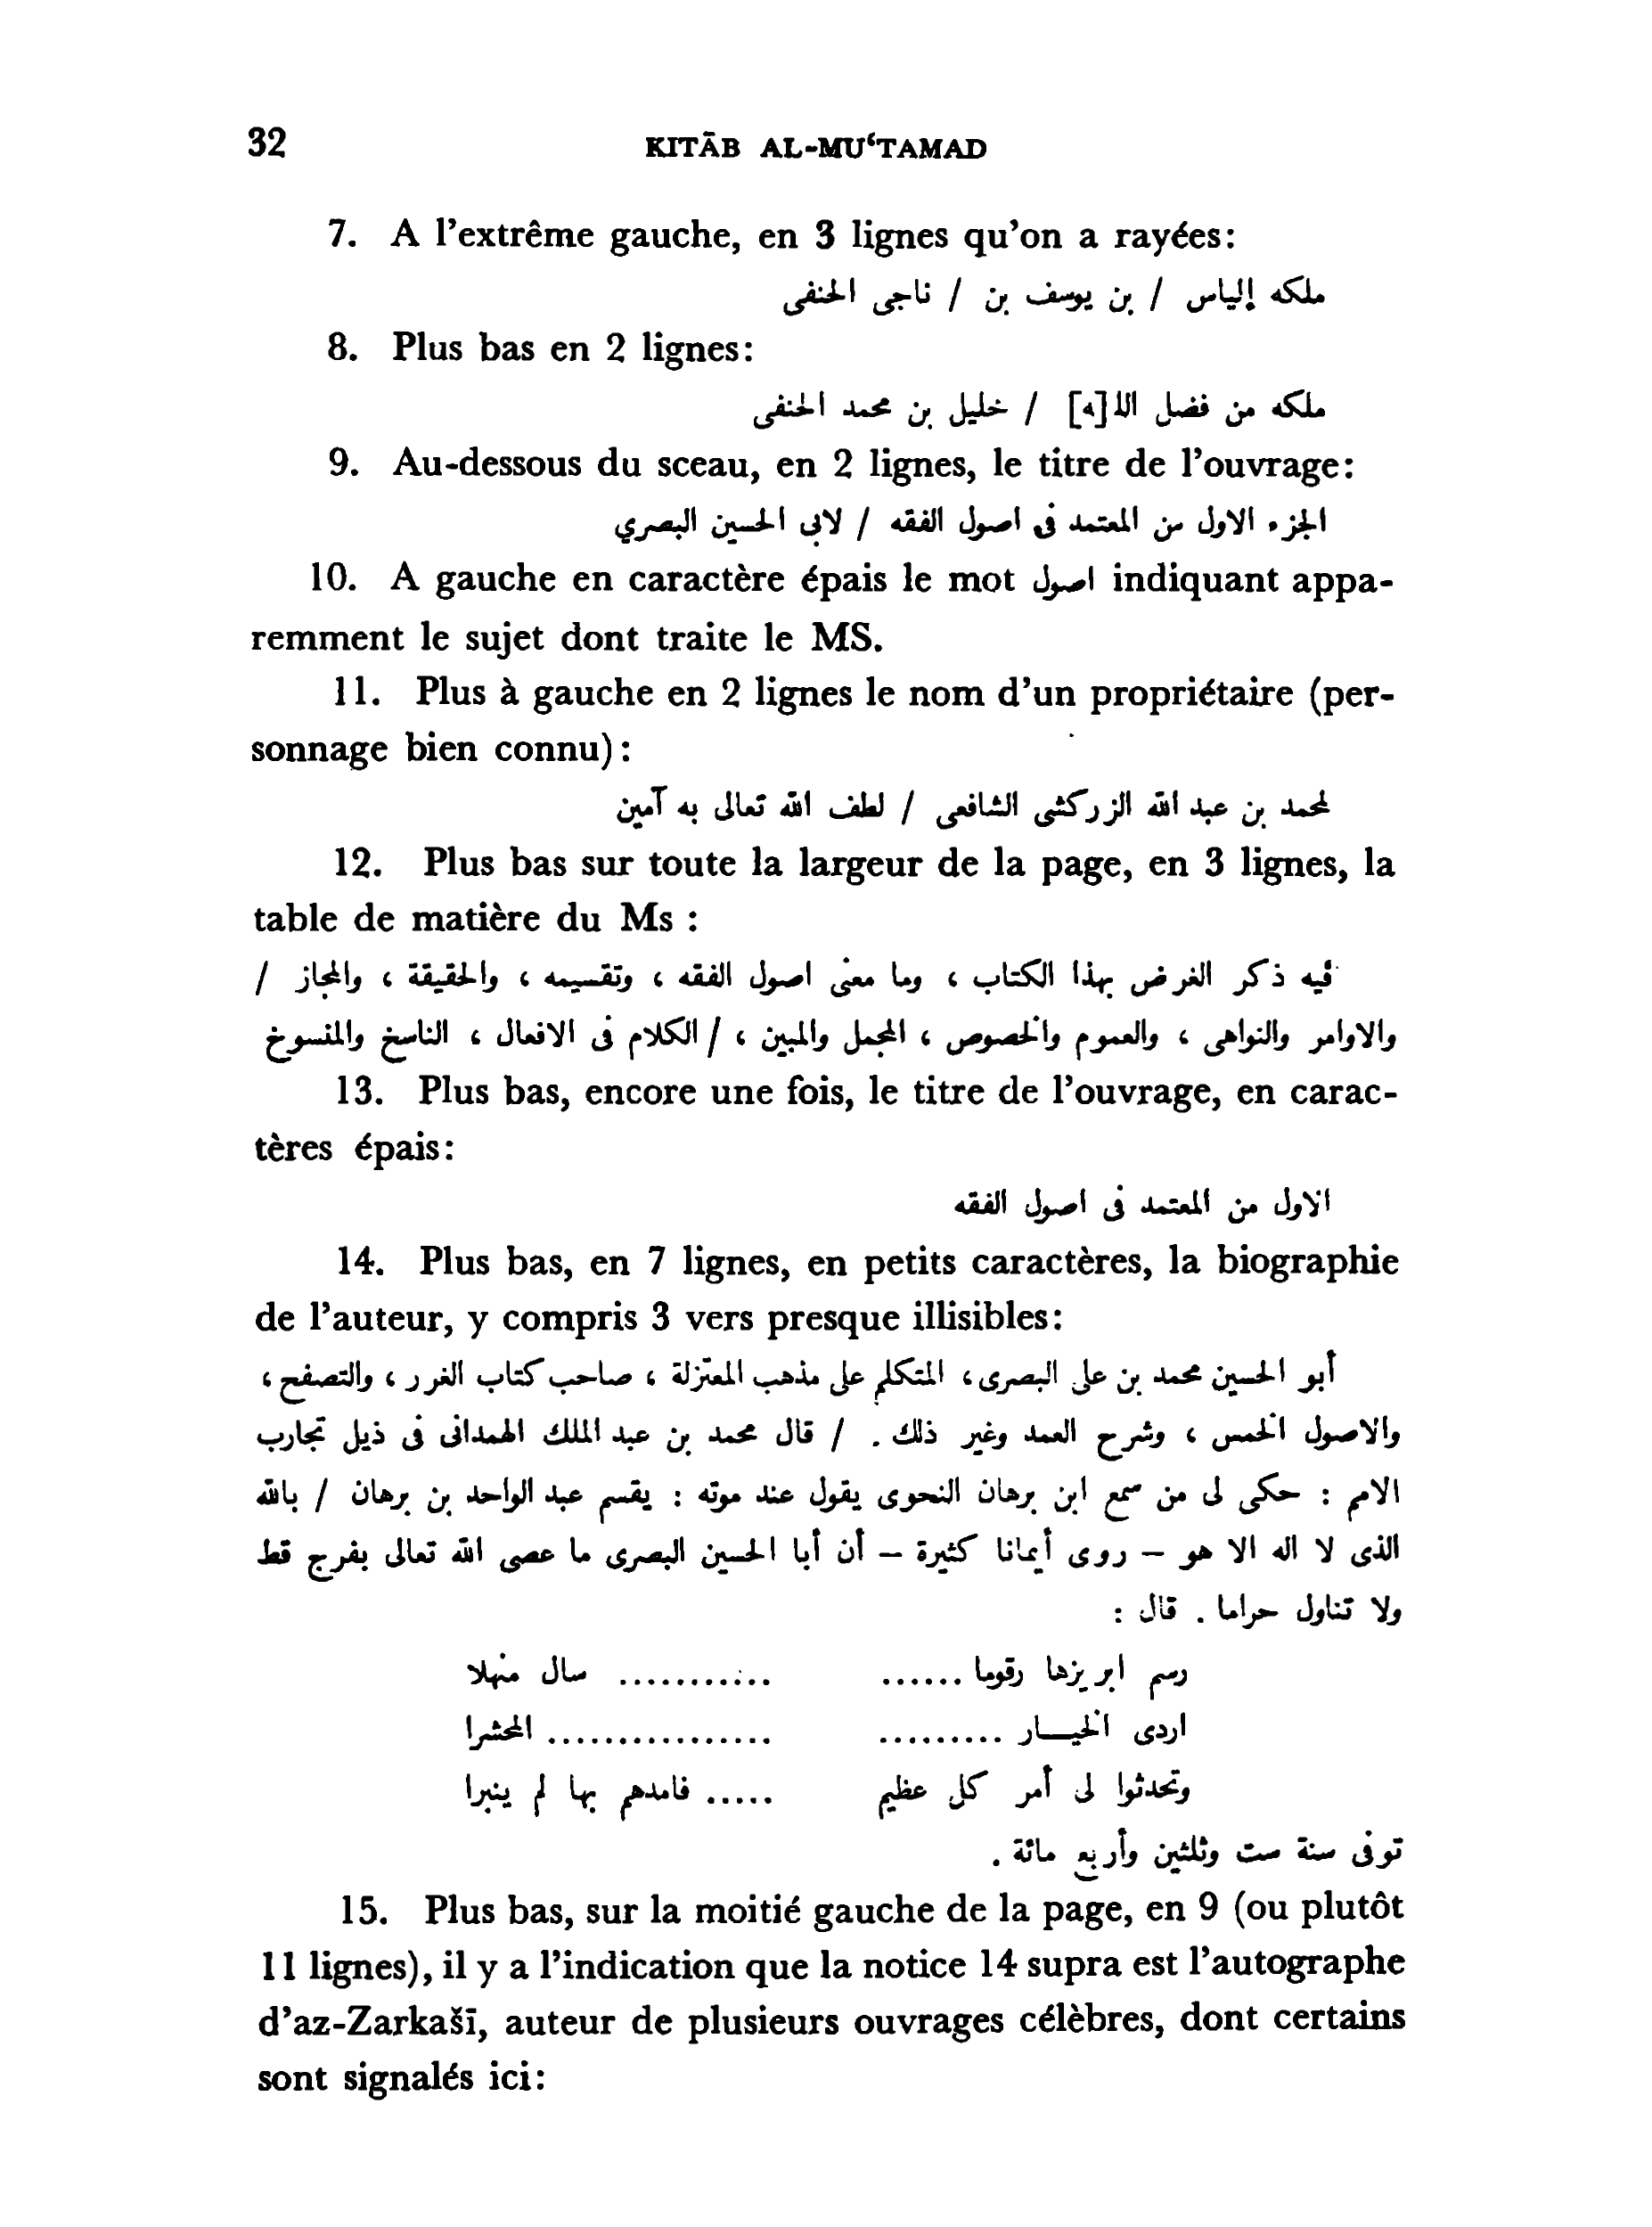 32
KITĀB AL-MU‘TAMAD
7. A l’extrême gauche, en 3 lignes qu’on a rayées:
ملكه إلياس / بن يوسف بن / ناجى الحنفى
8. Plus bas en 2 lignes:
ملكه من فضل اللـ[ـه] / خليل بن محمد الحنفى
9. Au-dessous du sceau, en 2 lignes, le titre de l’ouvrage:
الجزء الاول من المعتمد فى اصول الفقه / لابى الحسين البصري
10. A gauche en caractère épais le mot اصول indiquant appa-
remment le sujet dont traite le MS.
11. Plus à gauche en 2 lignes le nom d’un propriétaire (per-
sonnage bien connu):
لمحمد بن عبد الله الزركشى الشافعى / لطف الله تعالى به آمين
12. Plus bas sur toute la largeur de la page, en 3 lignes, la
table de matière du Ms :
فيه ذكر الغرض بهذا الكتاب ، وما معنى اصول الفقه ، وتقسيمه ، والحقيقة ، والمجاز /
والاوامر والنواهى ، والعموم والخصوص ، المجمل والمبين ، / الكلام فى الافعال ، الناسخ والمنسوخ
13. Plus bas, encore une fois, le titre de l’ouvrage, en carac-
tères épais:
الاول من المعتمد فى اصول الفقه
14. Plus bas, en 7 lignes, en petits caractères, la biographie
de l’auteur, y compris 3 vers presque illisibles:
أبو الحسين محمد بن على البصرى، المتكلم على مذهب المعتزلة ، صاحب كتاب الغرر ، والتصفح ،
والاصول الخمس ، وشرح العمد وغير ذلك . / قال محمد بن عبد الملك الهمدانى فى ذيل تجارب
الامم : حكى لى من سمع ابن برهان النحوى يقول عند موته : يقسم عبد الواحد بن برهان / بالله
الذى لا اله الا هو – روى أيمانا كثيرة – أن أبا الحسين البصرى ما عصى الله تعالى بفرج قط
ولا تناول حراما . قال :
رسم ابريزها رقوما ...... ........... سال منهلا
اردى الخيـار ......... ................ المحشرا
وتحدثوا لى أمر كل عظيم ..... فامدهم بها لم ينبرا
توفى سنة ست وثلثين وأربع مائة .
15. Plus bas, sur la moitié gauche de la page, en 9 (ou plutôt
11 lignes), il y a l’indication que la notice 14 supra est l’autographe
d’az-Zarkašī, auteur de plusieurs ouvrages célèbres, dont certains
sont signalés ici: